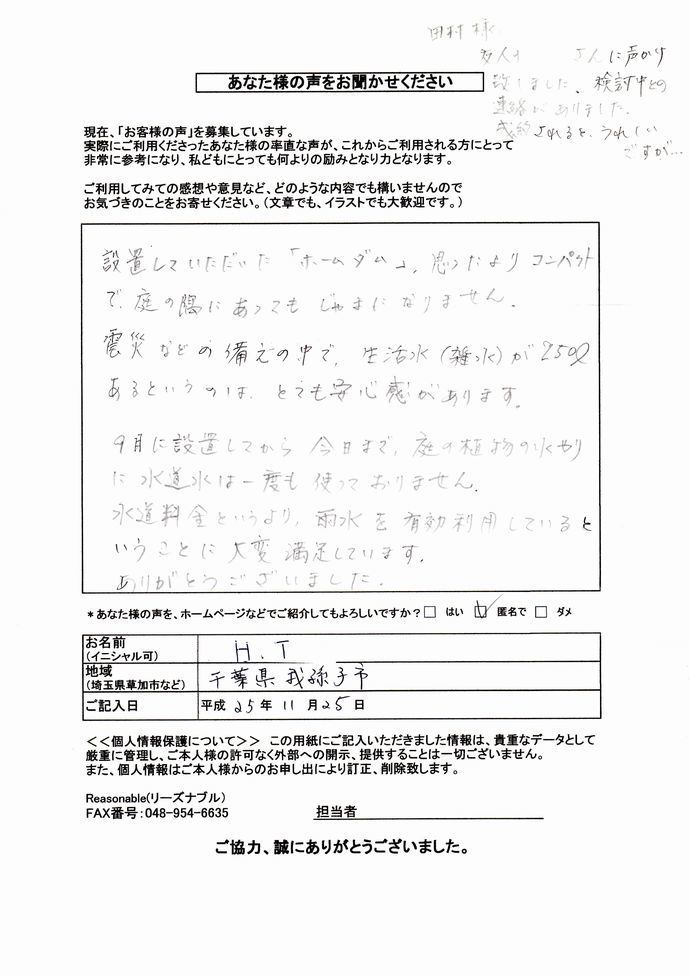 田村様
友人の さんに声かけ
致しました、検討中との
連絡がありました。
成約されると、うれしい
ですが…
あなた様の声をお聞かせください
現在、「お客様の声」を募集しています。
実際にご利用くださったあなた様の率直な声が、これからご利用される方にとって
非常に参考になり、私どもにとっても何よりの励みとなり力となります。
ご利用してみての感想や意見など、どのような内容でも構いませんので
お気づきのことをお寄せください。（文章でも、イラストでも大歓迎です。）
設置していただいた「ホームダム」、思ったよりコンパクト
で、庭の隅にあってもじゃまになりません。
震災などの備えの中で、生活水（雑水）が250ℓ
あるというのは、とても安心感があります。
9月に設置してから今日まで、庭の植物の水やり
に水道水は一度も使っておりません。
水道料金というより、雨水を有効利用していると
いうことに大変満足しています。
ありがとうございました。
*あなた様の声を、ホームページなどでご紹介してもよろしいですか？□ はい ☑ 匿名で □ ダメ
お名前
(イニシャル可)
H.T
地域
(埼玉県草加市など)
千葉県我孫子市
ご記入日
平成 25年 11月25日
<<個人情報保護について>> この用紙にご記入いただきました情報は、貴重なデータとして
厳重に管理し、ご本人様の許可なく外部への開示、提供することは一切ございません。
また、個人情報はご本人様からのお申し出により訂正、削除致します。
Reasonable(リーズナブル)
FAX番号：048-954-6635
担当者
ご協力、誠にありがとうございました。